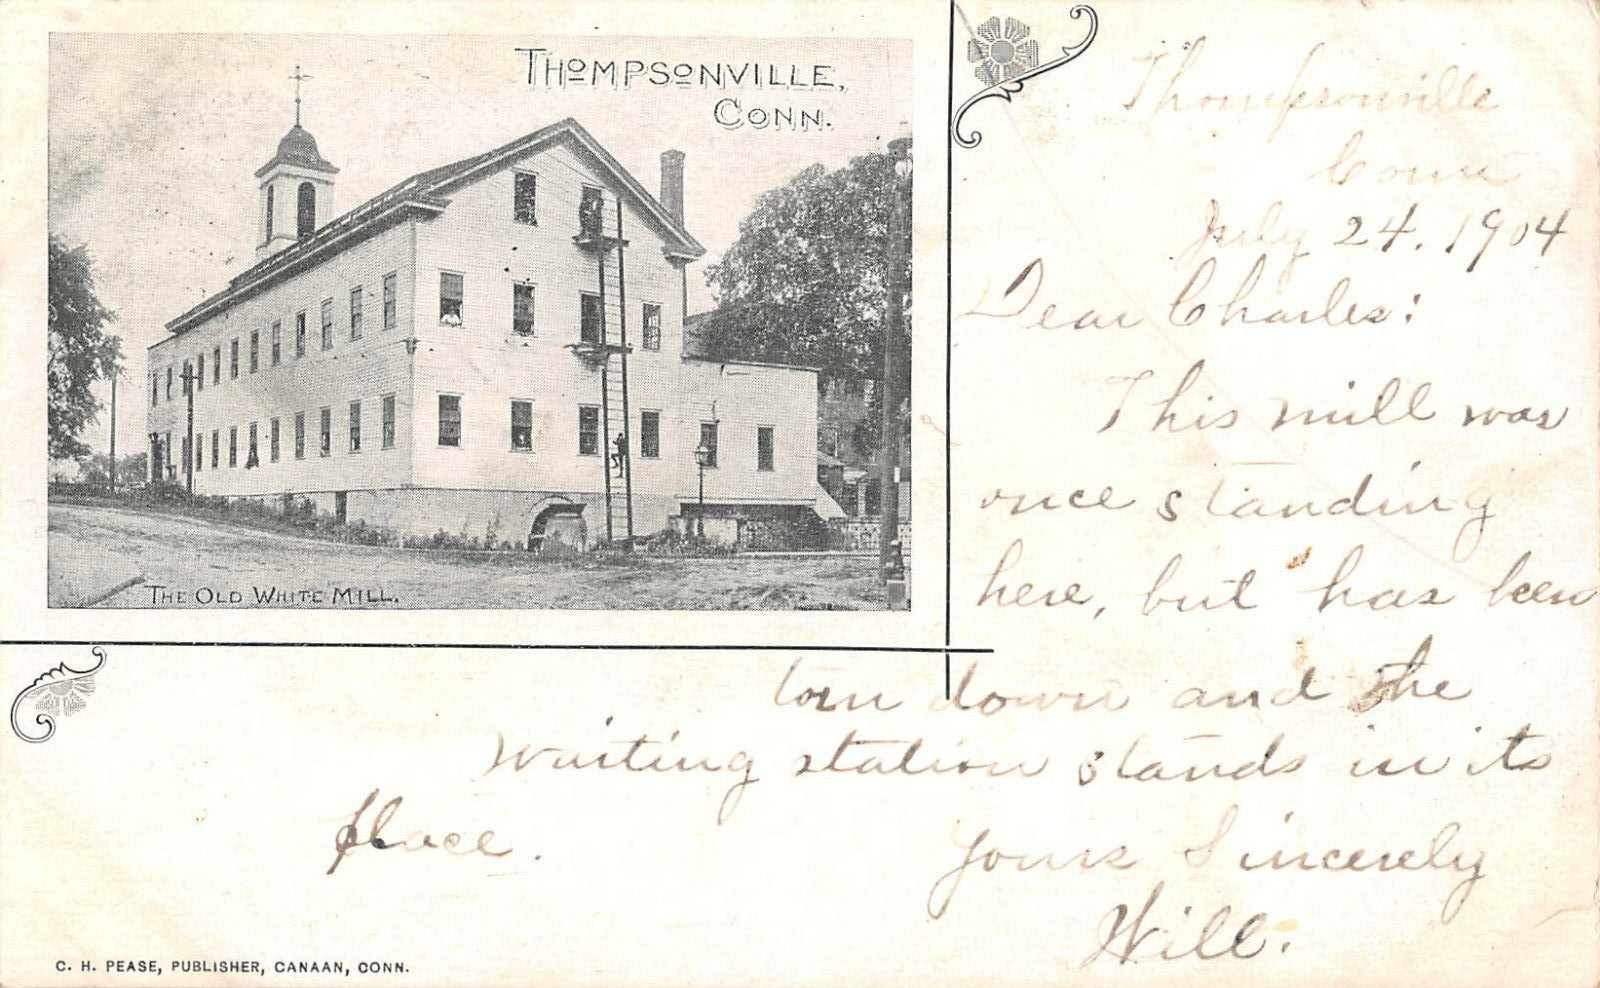 THOMPSONVILLE,
CONN.
THE OLD WHITE MILL.
Thompsonville
Conn
July 24. 1904
Dear Charles:
This mill was
once standing
here, but has been
torn down and the
waiting station stands in its
place.
Yours Sincerely
Will.
C. H. PEASE, PUBLISHER, CANAAN, CONN.